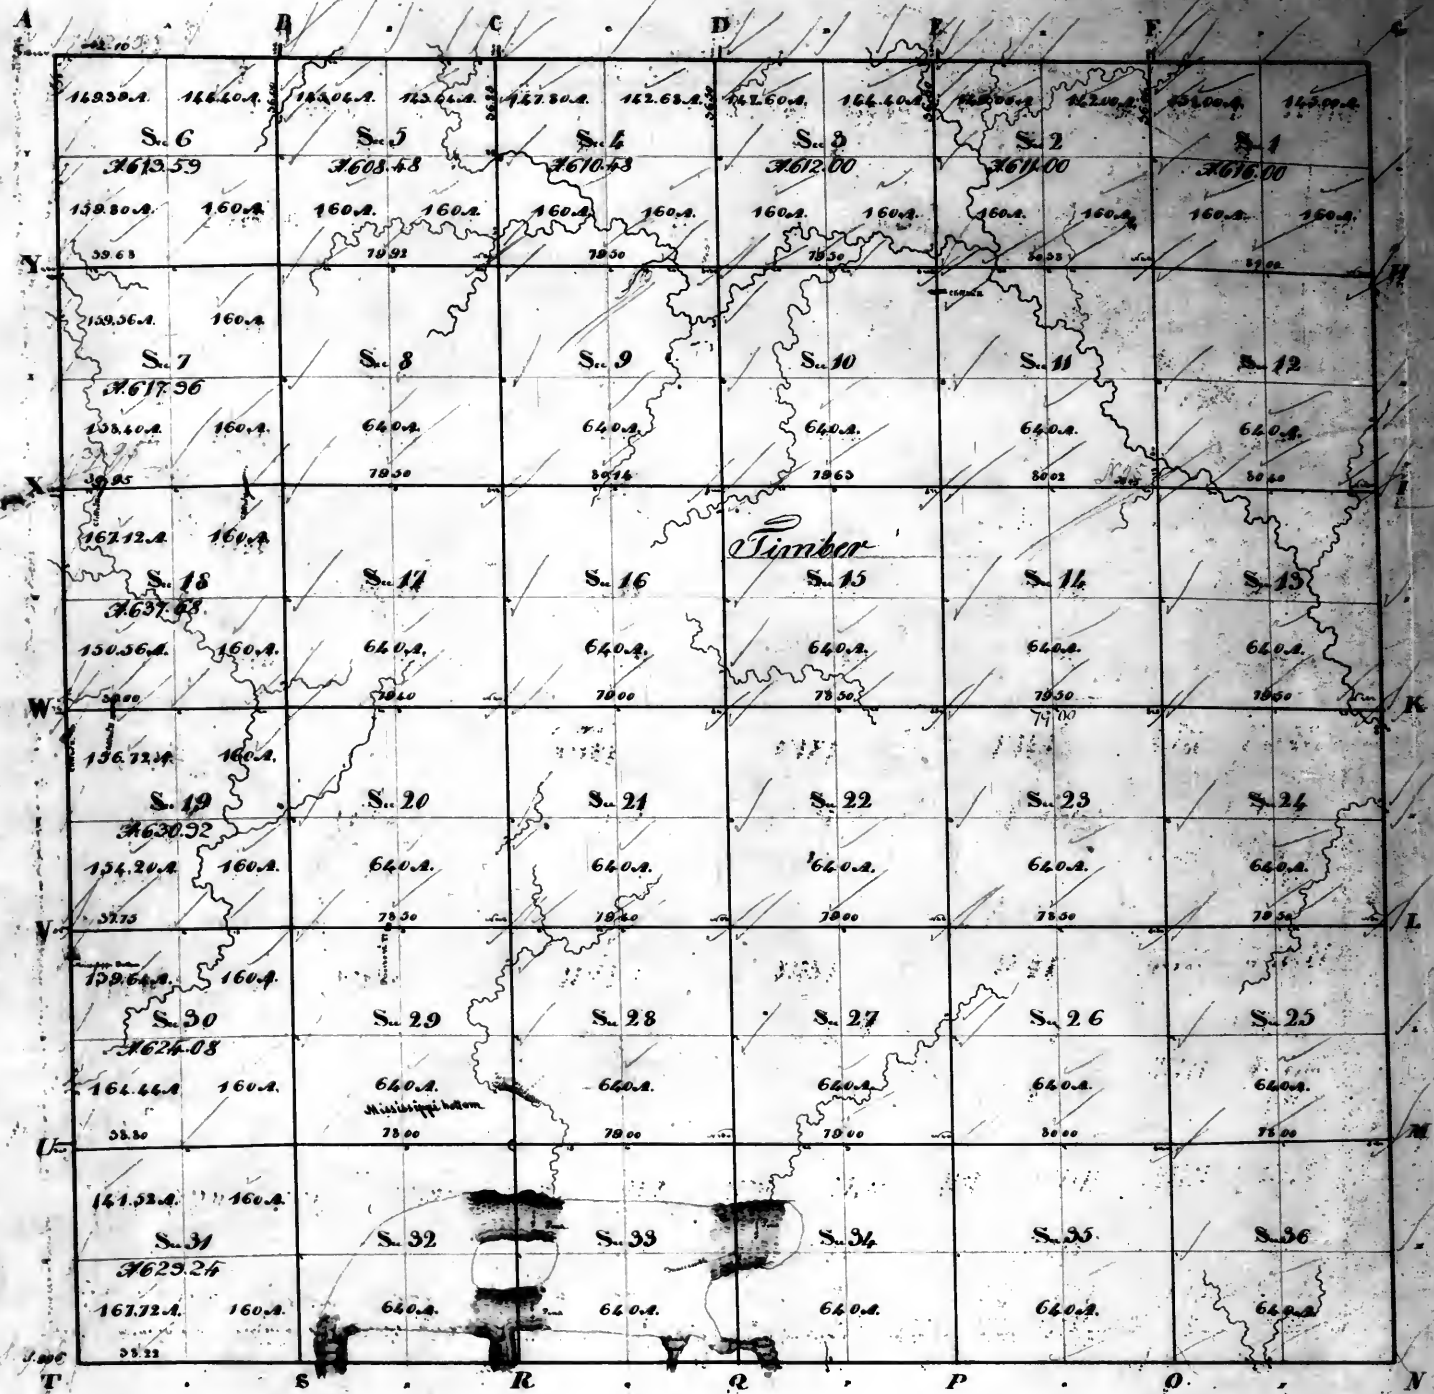 A B C D E F G
149.39A. 144.40A. 143.04A. 143.44A. 147.80A. 142.68A. 142.60A. 144.40A. 142.00A. 143.00A.
Sec 6 Sec 5 Sec 4 Sec 3 Sec 2 Sec 1
A.613.59 A.608.48 A.610.48 A.612.00 A.611.00 A.616.00
159.80A. 160A. 160A. 160A. 160A. 160A. 160A. 160A. 160A. 160A. 160A. 160A.
Y 39.68 79.92 79.50 79.50 H
159.56A. 160A.
Sec 7 Sec 8 Sec 9 Sec 10 Sec 11 Sec 12
A.617.96
158.40A. 160A. 640A. 640A. 640A. 640A. 640A.
X 79.50 80.14 79.63 80.02 80.40 I
167.12A. 160A.
Timber
Sec 18 Sec 17 Sec 16 Sec 15 Sec 14 Sec 13
A.637.68
150.56A. 160A. 640A. 640A. 640A. 640A. 640A.
W 79.40 79.00 78.50 79.50 79.50 K
79.00
156.72A. 160A.
Sec 19 Sec 20 Sec 21 Sec 22 Sec 23 Sec 24
A.630.92
154.20A. 160A. 640A. 640A. 640A. 640A. 640A.
V 37.75 78.50 79.40 79.00 78.50 79.50 L
139.64A. 160A.
Sec 30 Sec 29 Sec 28 Sec 27 Sec 26 Sec 25
A.624.08
164.44A. 160A. 640A. 640A. 640A. 640A. 640A.
Mississippi bottom
U 38.80 78.00 79.00 79.00 80.00 78.00 M
141.52A. 160A.
Sec 31 Sec 32 Sec 33 Sec 34 Sec 35 Sec 36
A.629.24
167.72A. 160A. 640A. 640A. 640A. 640A. 640A.
38.22
T S R Q P O N